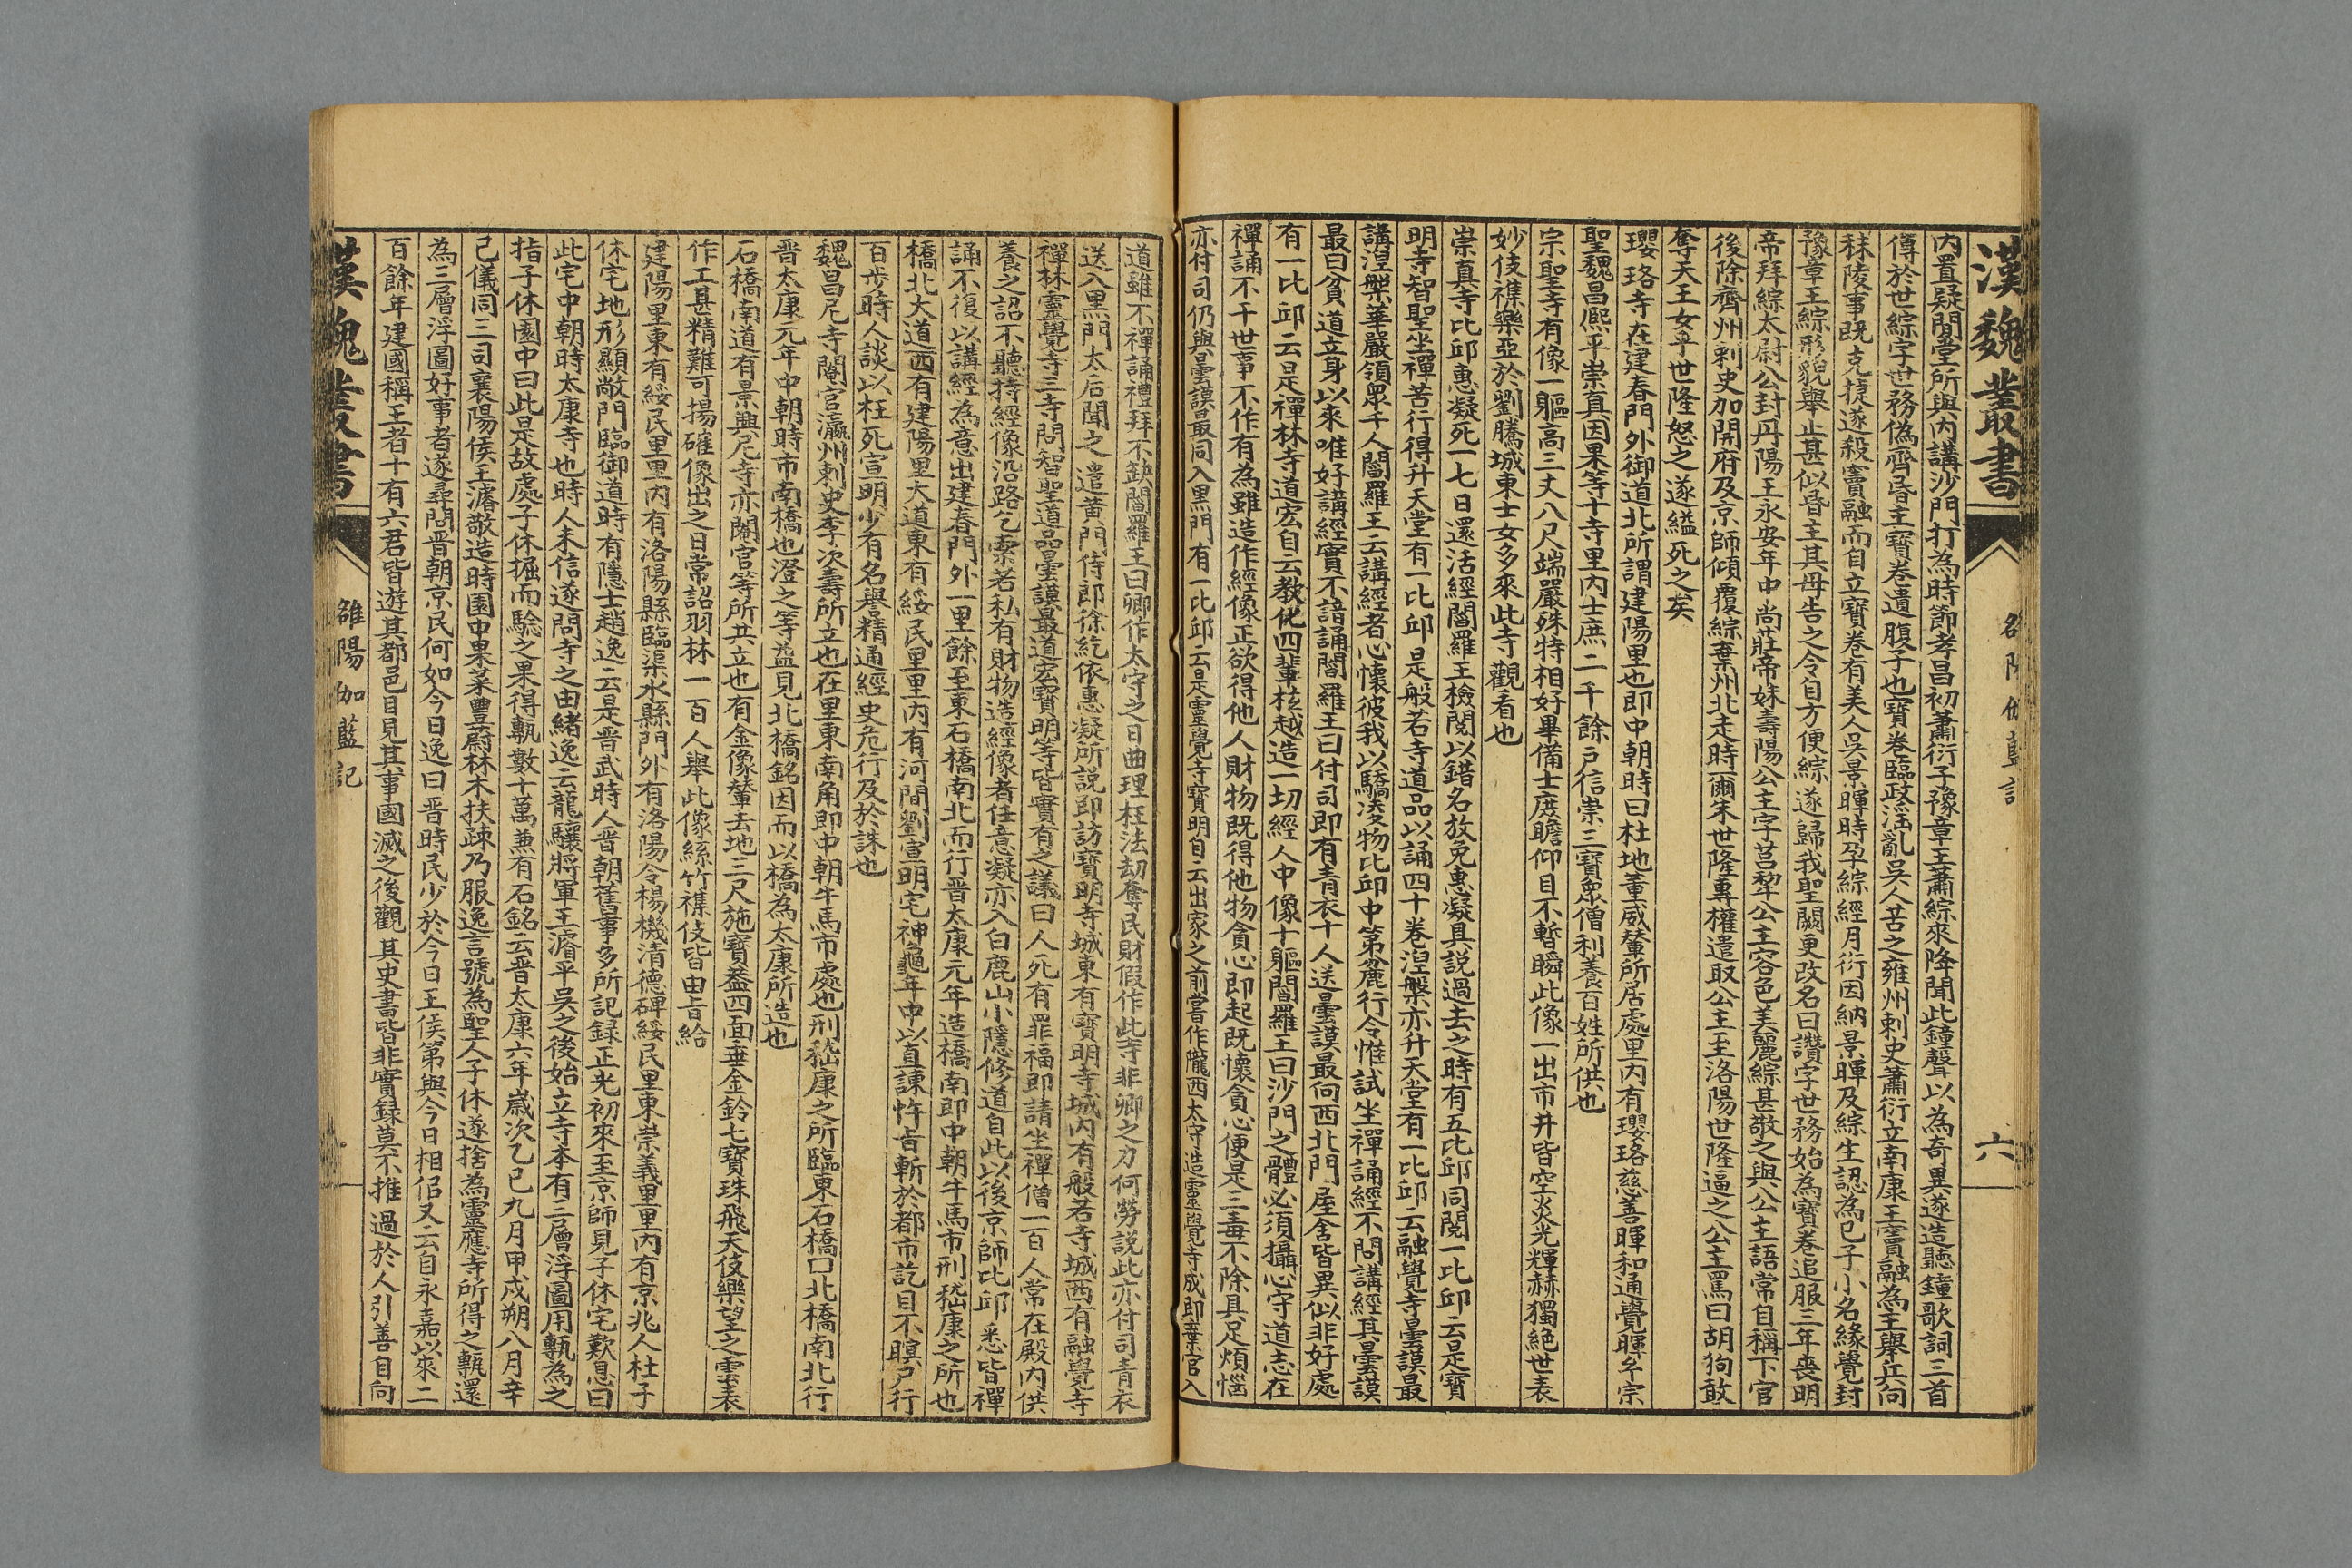 漢魏叢書
六
內置疑閒堂所與內講沙門打為時節孝昌初蕭衍子豫章王蕭綜來降聞此鐘聲以為奇異遂造聽鐘歌詞三首
傳於世綜字世務偽齊昏主寶卷遺腹子也寶卷臨政淫亂吳人苦之雍州刺史蕭衍立南康王寶融為主舉兵向
秣陵事既克捷遂殺寶融而自立寶卷有美人吳景暉時孕綜經月衍因納景暉及綜生認為己子小名緣覺封
豫章王綜形貌舉止甚似昏主其母告之令自方便綜遂歸我聖闕更改名曰讚字世務始為寶卷追服三年喪明
帝拜綜太尉公封丹陽王永安年中尚莊帝妹壽陽公主字莒犂公主容色美麗綜甚敬之與公主語常自稱下官
後除齊州刺史加開府及京師傾覆綜棄州北走時爾朱世隆專權遣取公主至洛陽世隆逼之公主罵曰胡狗敢
奪天王女乎世隆怒之遂縊死之矣
瓔珞寺在建春門外御道北所謂建陽里也即中朝時曰社地董威輦所居處里內有瓔珞慈善暉和通覺暉牟宗
聖魏昌熙平崇真因果等十寺里內士庶二千餘戶信崇三寶眾僧利養百姓所供也
宗聖寺有像一軀高三丈八尺端嚴殊特相好畢備士庶瞻仰目不暫瞬此像一出市井皆空炎光輝赫獨絕世表
妙伎襍樂亞於劉騰城東士女多來此寺觀看也
崇真寺比邱惠凝死一七日還活經閻羅王檢閱以錯名放免惠凝具說過去之時有五比邱同閱一比邱云是寶
明寺智聖坐禪苦行得升天堂有一比邱是般若寺道品以誦四十卷湼槃亦升天堂有一比邱云融覺寺曇謨最
講湼槃華嚴領眾千人閻羅王云講經者心懷彼我以驕凌物比邱中第麄行今惟試坐禪誦經不問講經其曇謨
最曰貧道立身以來唯好講經實不諳誦閻羅王曰付司即有青衣十人送曇謨最向西北門屋舍皆異似非好處
有一比邱云是禪林寺道宏自云教化四輩校越造一切經人中像十軀閻羅王曰沙門之體必須攝心守道志在
禪誦不干世事不作有為雖造作經像正欲得他人財物既得他物貪心即起既懷貪心便是三毒不除具足煩惱
亦付司仍與曇謨最同入黑門有一比邱云是靈覺寺寶明自云出家之前嘗作隴西太守造靈覺寺成即棄官入
道雖不禪誦禮拜不缺閻羅王曰卿作太守之日曲理枉法劫奪民財假作此寺非卿之力何勞說此亦付司青衣
送入黑門太后聞之遣黃門侍郎徐紇依惠凝所說即訪寶明寺城東有寶明寺城內有般若寺城西有融覺寺
禪林靈覺寺三寺問智聖道品曇謨最道宏寶明等皆實有之議曰人死有罪福即請坐禪僧一百人常在殿內供
養之詔不聽持經像沿路乞索若私有財物造經像者任意凝亦入白鹿山小隱修道自此以後京師比邱悉皆禪
誦不復以講經為意出建春門外一里餘至東石橋南北而行晉太康元年造橋南即中朝牛馬市刑嵇康之所也
橋北大道西有建陽里大道東有綏民里里內有河間劉宣明宅神龜年中以直諫忤旨斬於都市訖目不瞑尸行
百步時人談以枉死宣明少有名譽精通經史危行及於誅也
魏昌尼寺閹官瀛州刺史李次壽所立也在里東南角即中朝牛馬市處也刑嵇康之所臨東石橋口北橋南北行
晉太康元年中朝時市南橋也澄之等蓋見北橋銘因而以橋為太康所造也
石橋南道有景興尼寺亦閹官等所共立也有金像輦去地三尺施寶蓋四面垂金鈴七寶珠飛天伎樂望之雲表
作工甚精難可揚㩁像出之日常詔羽林一百人舉此像絲竹襍伎皆由旨給
建陽里東有綏民里里內有洛陽縣臨渠水縣門外有洛陽令楊機清德碑綏民里東崇義里里內有京兆人杜子
休宅地形顯敞門臨御道時有隱士趙逸云是晉武時人晉朝舊事多所記録正光初來至京師見子休宅歎息曰
此宅中朝時太康寺也時人未信遂問寺之由緒逸云龍驤將軍王濬平吳之後始立寺本有三層浮圖用甎為之
指子休園中曰此是故處子休掘而驗之果得甎數十萬兼有石銘云晉太康六年歲次乙巳九月甲戌朔八月辛
巳儀同三司襄陽侯王濬敬造時園中果菜豐蔚林木扶疎乃服逸言號為聖人子休遂捨為靈應寺所得之甎還
為三層浮圖好事者遂尋問晉朝京民何如今日逸曰晉時民少於今日王侯第與今日相侣又云自永嘉以來二
百餘年建國稱王者十有六君皆遊其都邑目見其事國滅之後觀其史書皆非實録莫不推過於人引善自向
漢魏叢書
雒陽伽藍記